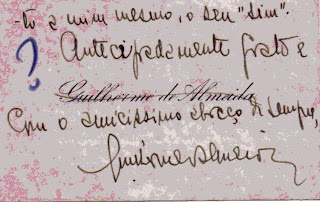 -to a mim mesmo, o seu "sim".
Antecipadamente grato e
?
Guilherme de Almeida
Com o amicissimo abraço de sempre,
Guilherme de Almeida